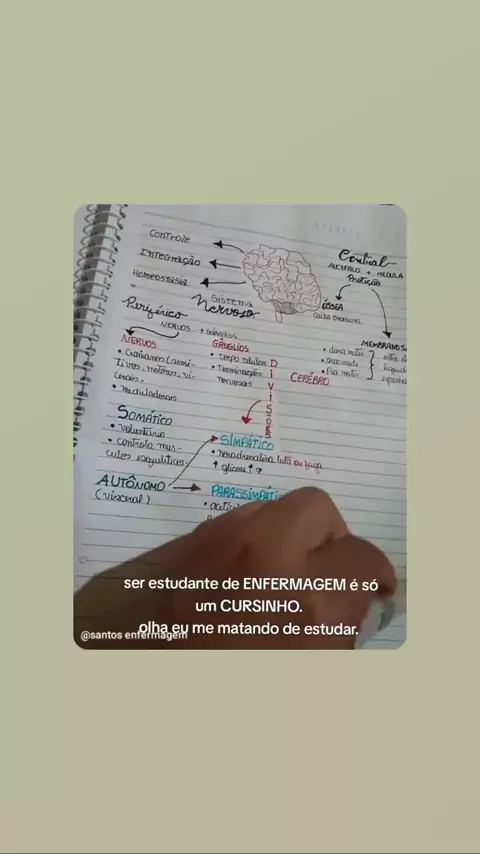 Controle
Integração
Homeostasia
Sistema
Nervoso
Central
ENCÉFALO + MEDULA
Proteção
ÓSSEA
Caixa craniana
MEMBRANOSA
• dura mater
• aracnoide
• Pia mater
Periférico
NERVOS + Gânglios
NERVOS
• Cranianos (sensi-
tivos, motores, vi-
cerais.
• medulares
GÂNGLIOS
• corpo celular
• Terminações
nervosas
DIVISÕES
CEREBRO
SOMÁTICO
• voluntário
• controla mús-
culos esqueléticos.
SIMPÁTICO
• noradrenalina luta ou fuga
↑ glicose ↑
AUTÔNOMO
(visceral)
PARASSIMPÁTI
ser estudante de ENFERMAGEM é só
um CURSINHO.
olha eu me matando de estudar.
@santos enfermagem